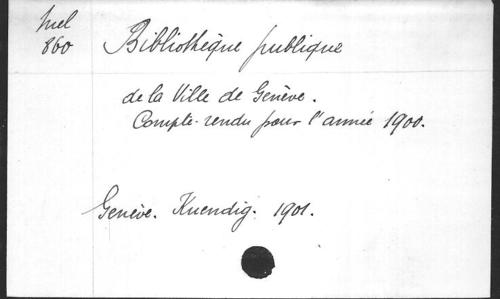 Mel
860
Bibliothèque publique
de la Ville de Genève.
Compte-rendu pour l'année 1900.
Genève. Kuendig. 1901.